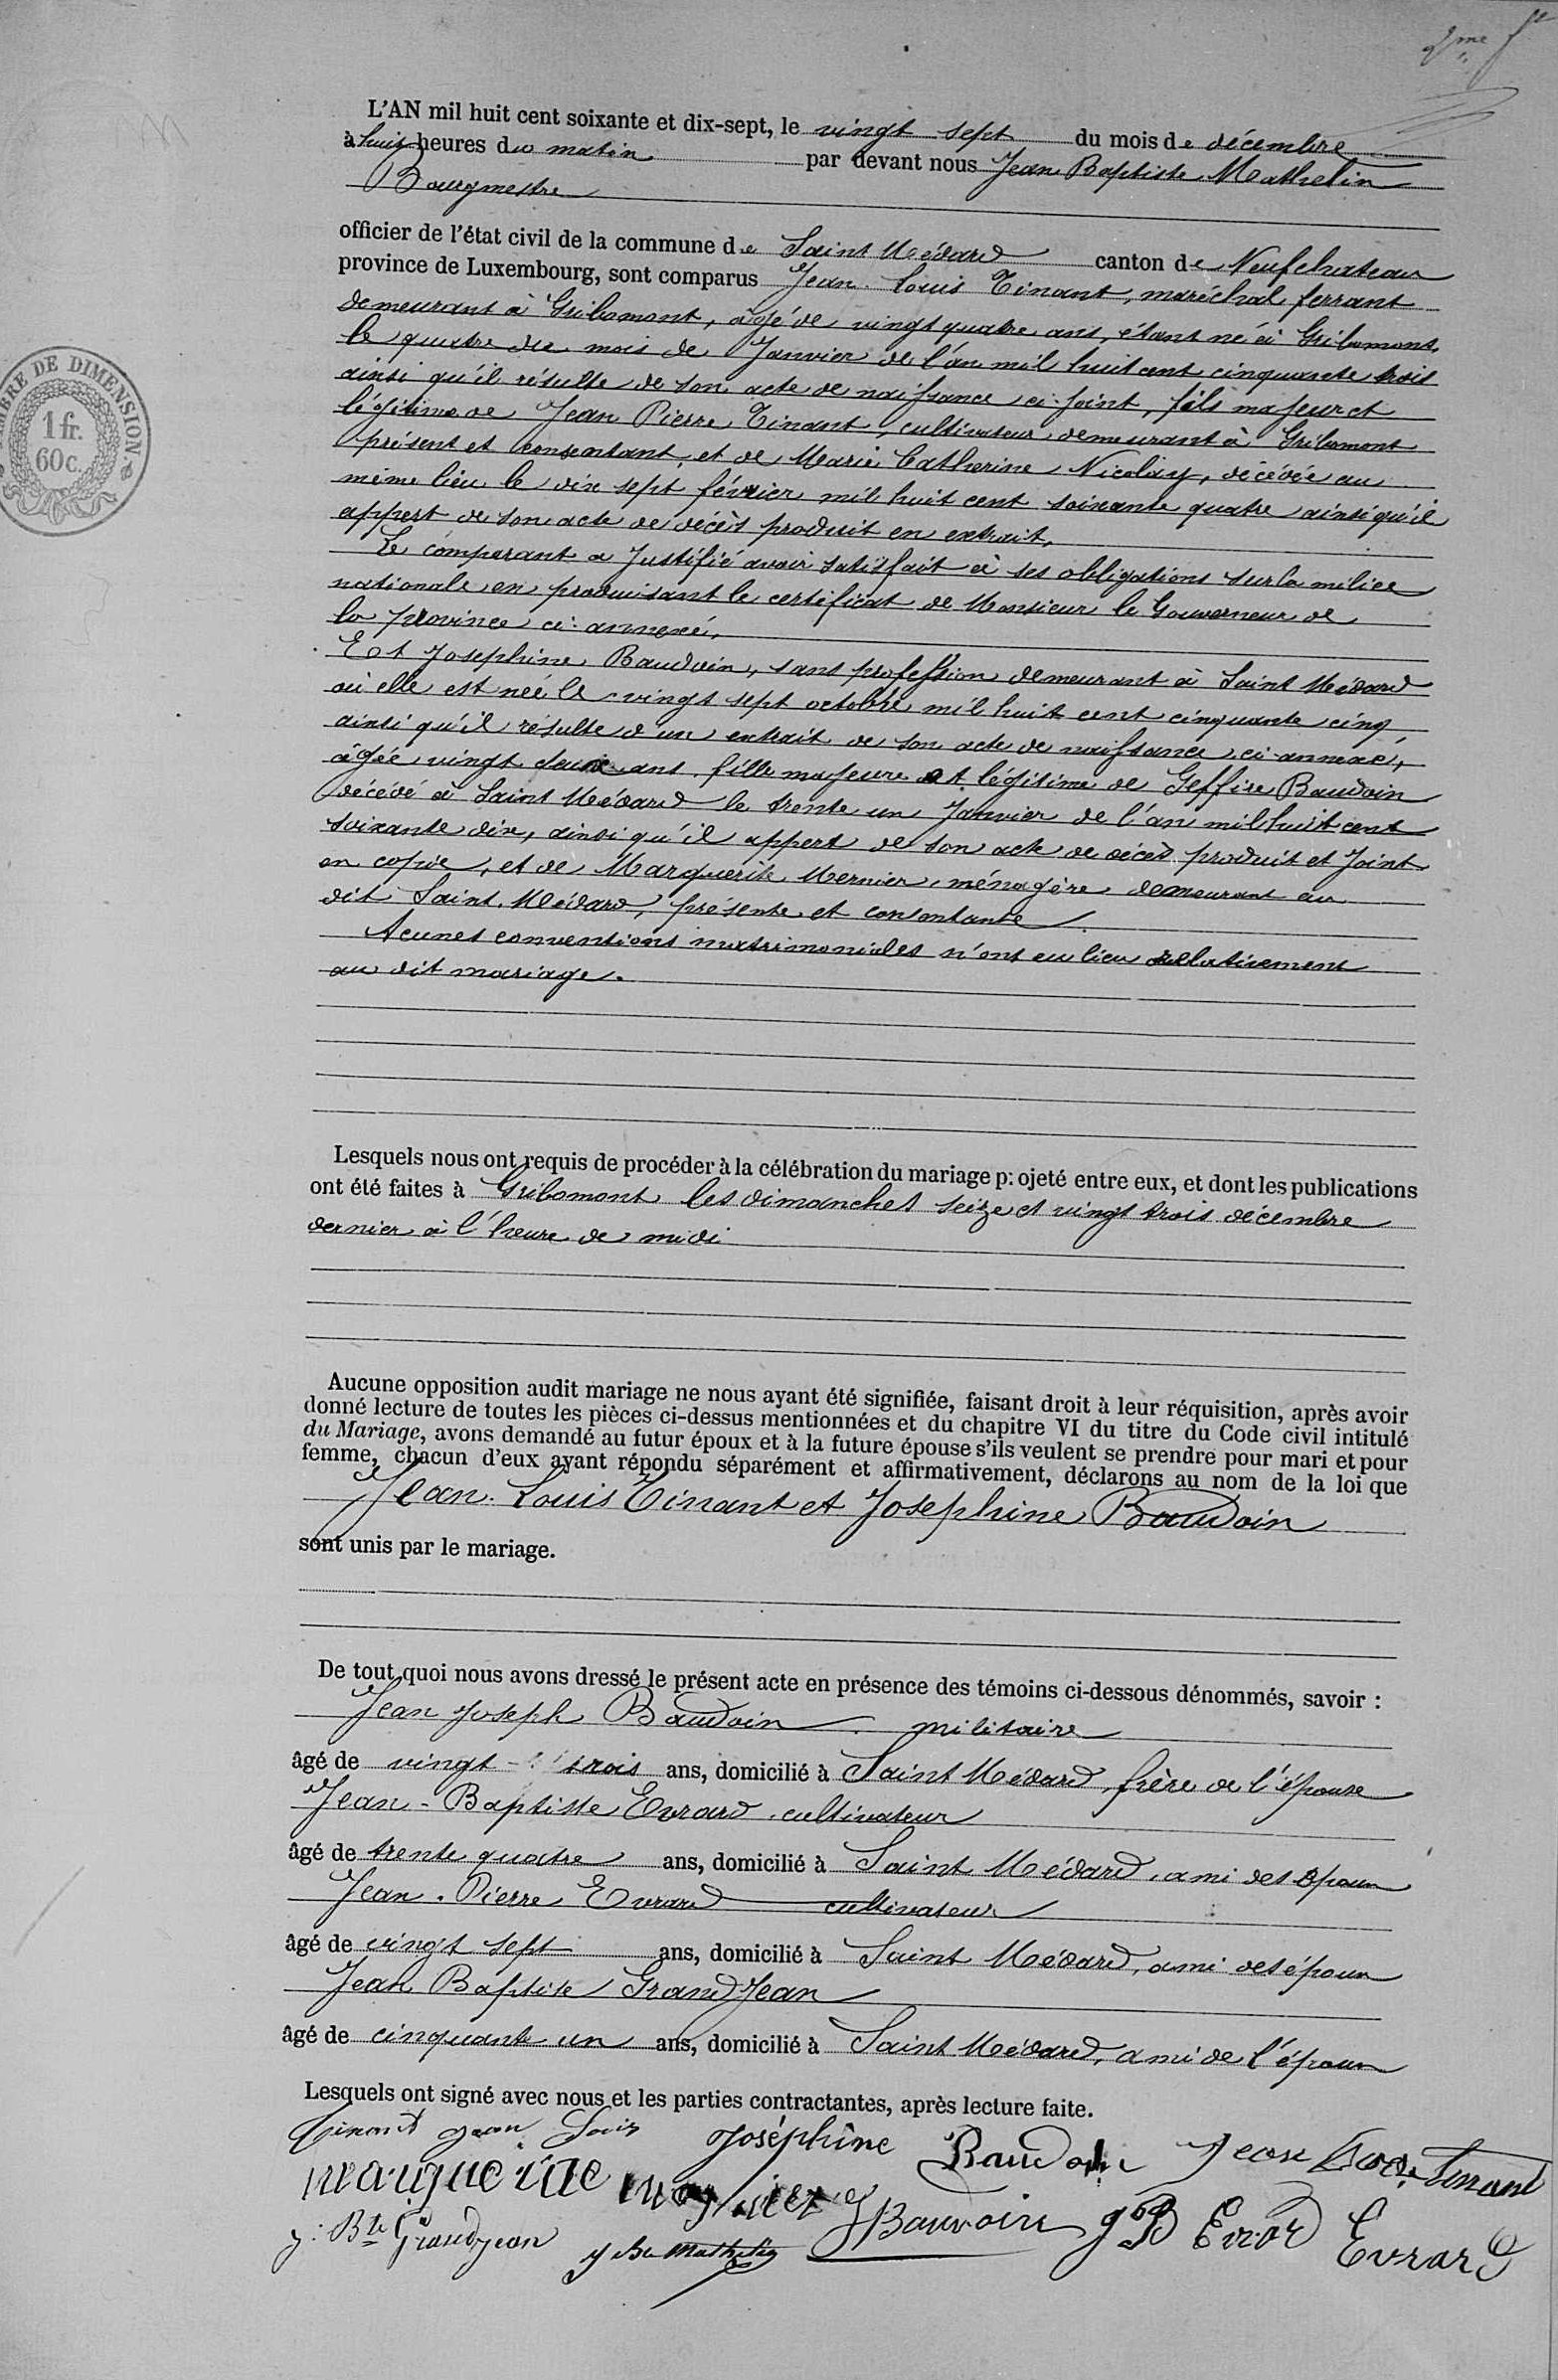 2me f
TIMBRE DE DIMENSION
1 fr.
60 c.
L'AN mil huit cent soixante et dix-sept, le vingt sept du mois de décembre
à huit heures du matin par devant nous Jean Baptiste Mathelin
Bourgmestre
officier de l'état civil de la commune de Saint Médard canton de Neufchateau
province de Luxembourg, sont comparus Jean Louis Tinant, maréchal ferrant
demeurant à Gribomont, âgé de vingt quatre ans, étant né à Gribomont,
le quatre du mois de Janvier de l'an mil huit cent cinquante trois
ainsi qu'il résulte de son acte de naissance ci-joint, fils majeur et
légitime de Jean Pierre Tinant, cultivateur demeurant à Gribomont
présent et consentant, et de Marie Catherine Nicolay, décédée au
même lieu le dix sept février mil huit cent soixante quatre ainsi qu'il
appert de son acte de décès produit en extrait,
Le comparant a justifié avoir satisfait à ses obligations sur la milice
nationale en produisant le certificat de Monsieur le Gouverneur de
la province ci-annexé,
Et Josephine Baudoin, sans profession demeurant à Saint Médard
où elle est née le vingt sept octobre mil huit cent cinquante cinq,
ainsi qu'il résulte d'un extrait de son acte de naissance ci-annexé,
âgée vingt deux ans fille majeure et légitime de Geffire Baudoin
décédé à Saint Médard le trente un Janvier de l'an mil huit cent
soixante dix, ainsi qu'il appert de son acte de décès produit et joint
en copie, et de Marguerite Mernier, ménagère demeurant au
dit Saint Médard, présente et consentante.
Acunes conventions matrimoniales n'ont eu lieu relativement
au dit mariage.
Lesquels nous ont requis de procéder à la célébration du mariage projeté entre eux, et dont les publications
ont été faites à Gribomont les dimanches seize et vingt trois décembre
dernier à l'heure de midi
Aucune opposition audit mariage ne nous ayant été signifiée, faisant droit à leur réquisition, après avoir
donné lecture de toutes les pièces ci-dessus mentionnées et du chapitre VI du titre du Code civil intitulé
du Mariage, avons demandé au futur époux et à la future épouse s'ils veulent se prendre pour mari et pour
femme, chacun d'eux ayant répondu séparément et affirmativement, déclarons au nom de la loi que
Jean Louis Tinant et Josephine Baudoin
sont unis par le mariage.
De tout quoi nous avons dressé le présent acte en présence des témoins ci-dessous dénommés, savoir :
Jean Joseph Baudoin militaire
âgé de vingt trois ans, domicilié à Saint Médard, frère de l'épouse
Jean-Baptiste Evrard, cultivateur
âgé de trente quatre ans, domicilié à Saint Médard, ami des époux
Jean-Pierre Evrard cultivateur
âgé de vingt sept ans, domicilié à Saint Médard, ami des époux
Jean Baptiste GrandJean
âgé de cinquante un ans, domicilié à Saint Médard, ami de l'époux
Lesquels ont signé avec nous et les parties contractantes, après lecture faite.
Tinant Jean Louis Joséphine Baudoin Jean Tinant
marguerite
J: Bte Grandjean J Bte Mathelin JJBauvoin J B Evrard Evrard